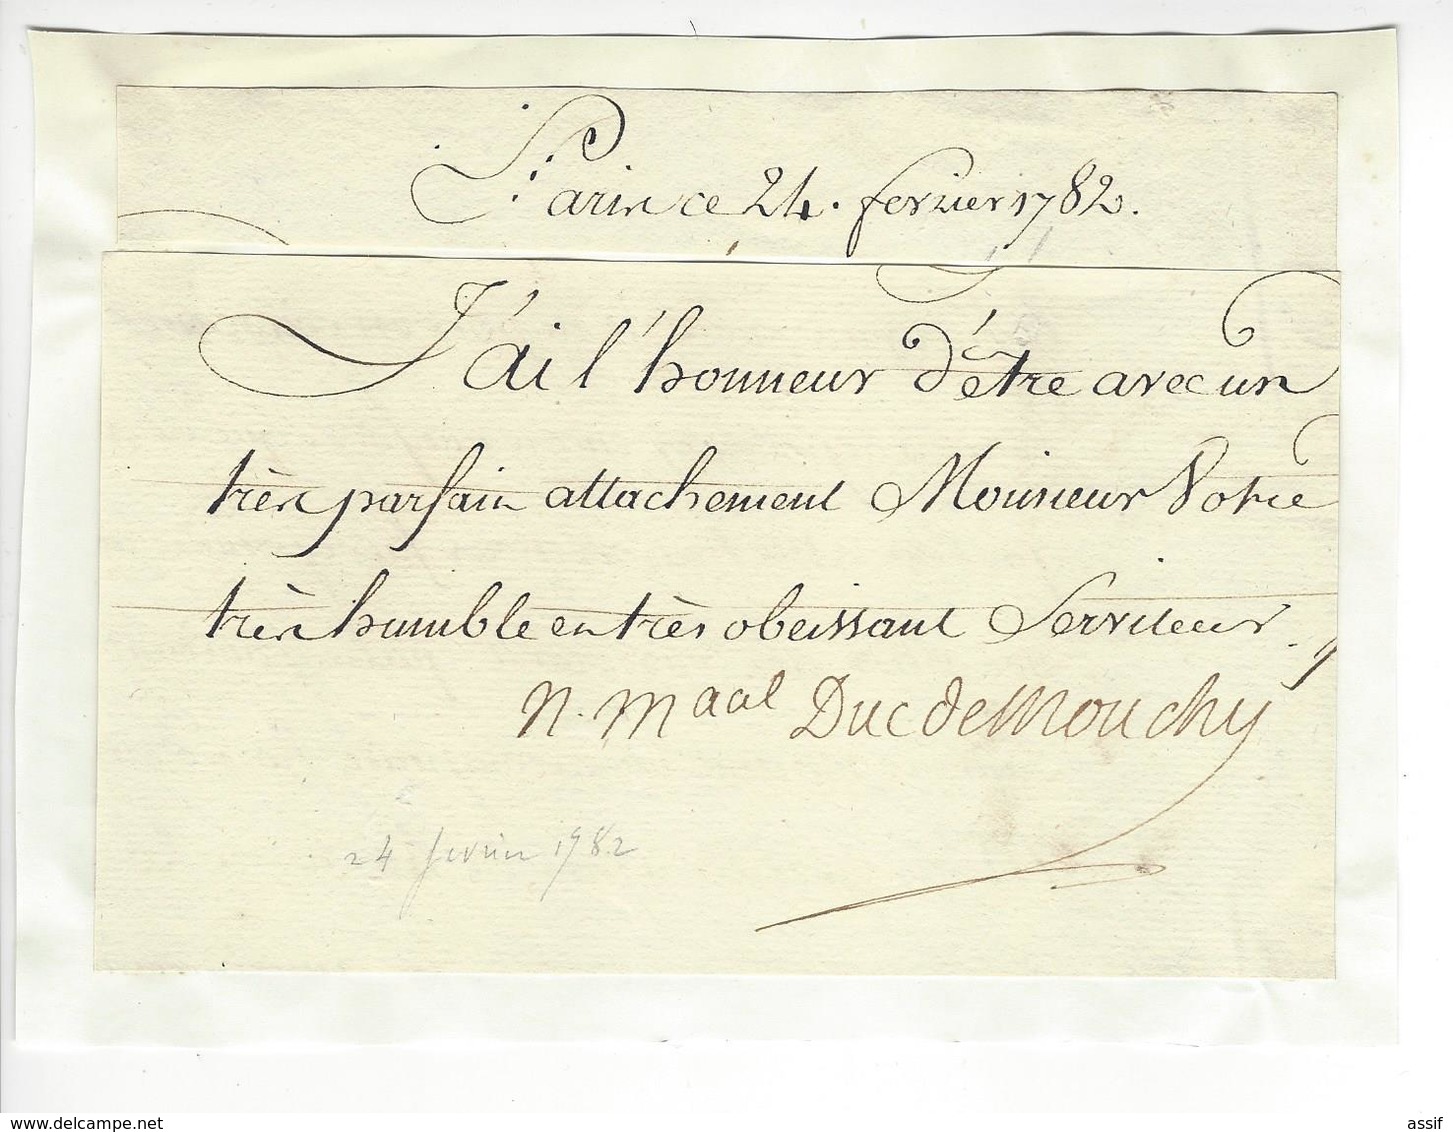 Paris ce 24. fevrier 1782.
J'ai l'honneur d'être avec un
très parfait attachement Monsieur Votre
très humble et très obeissant Serviteur.
N. Maal Duc de Mouchy
24 fevrier 1782
www.delcampe.net
assif